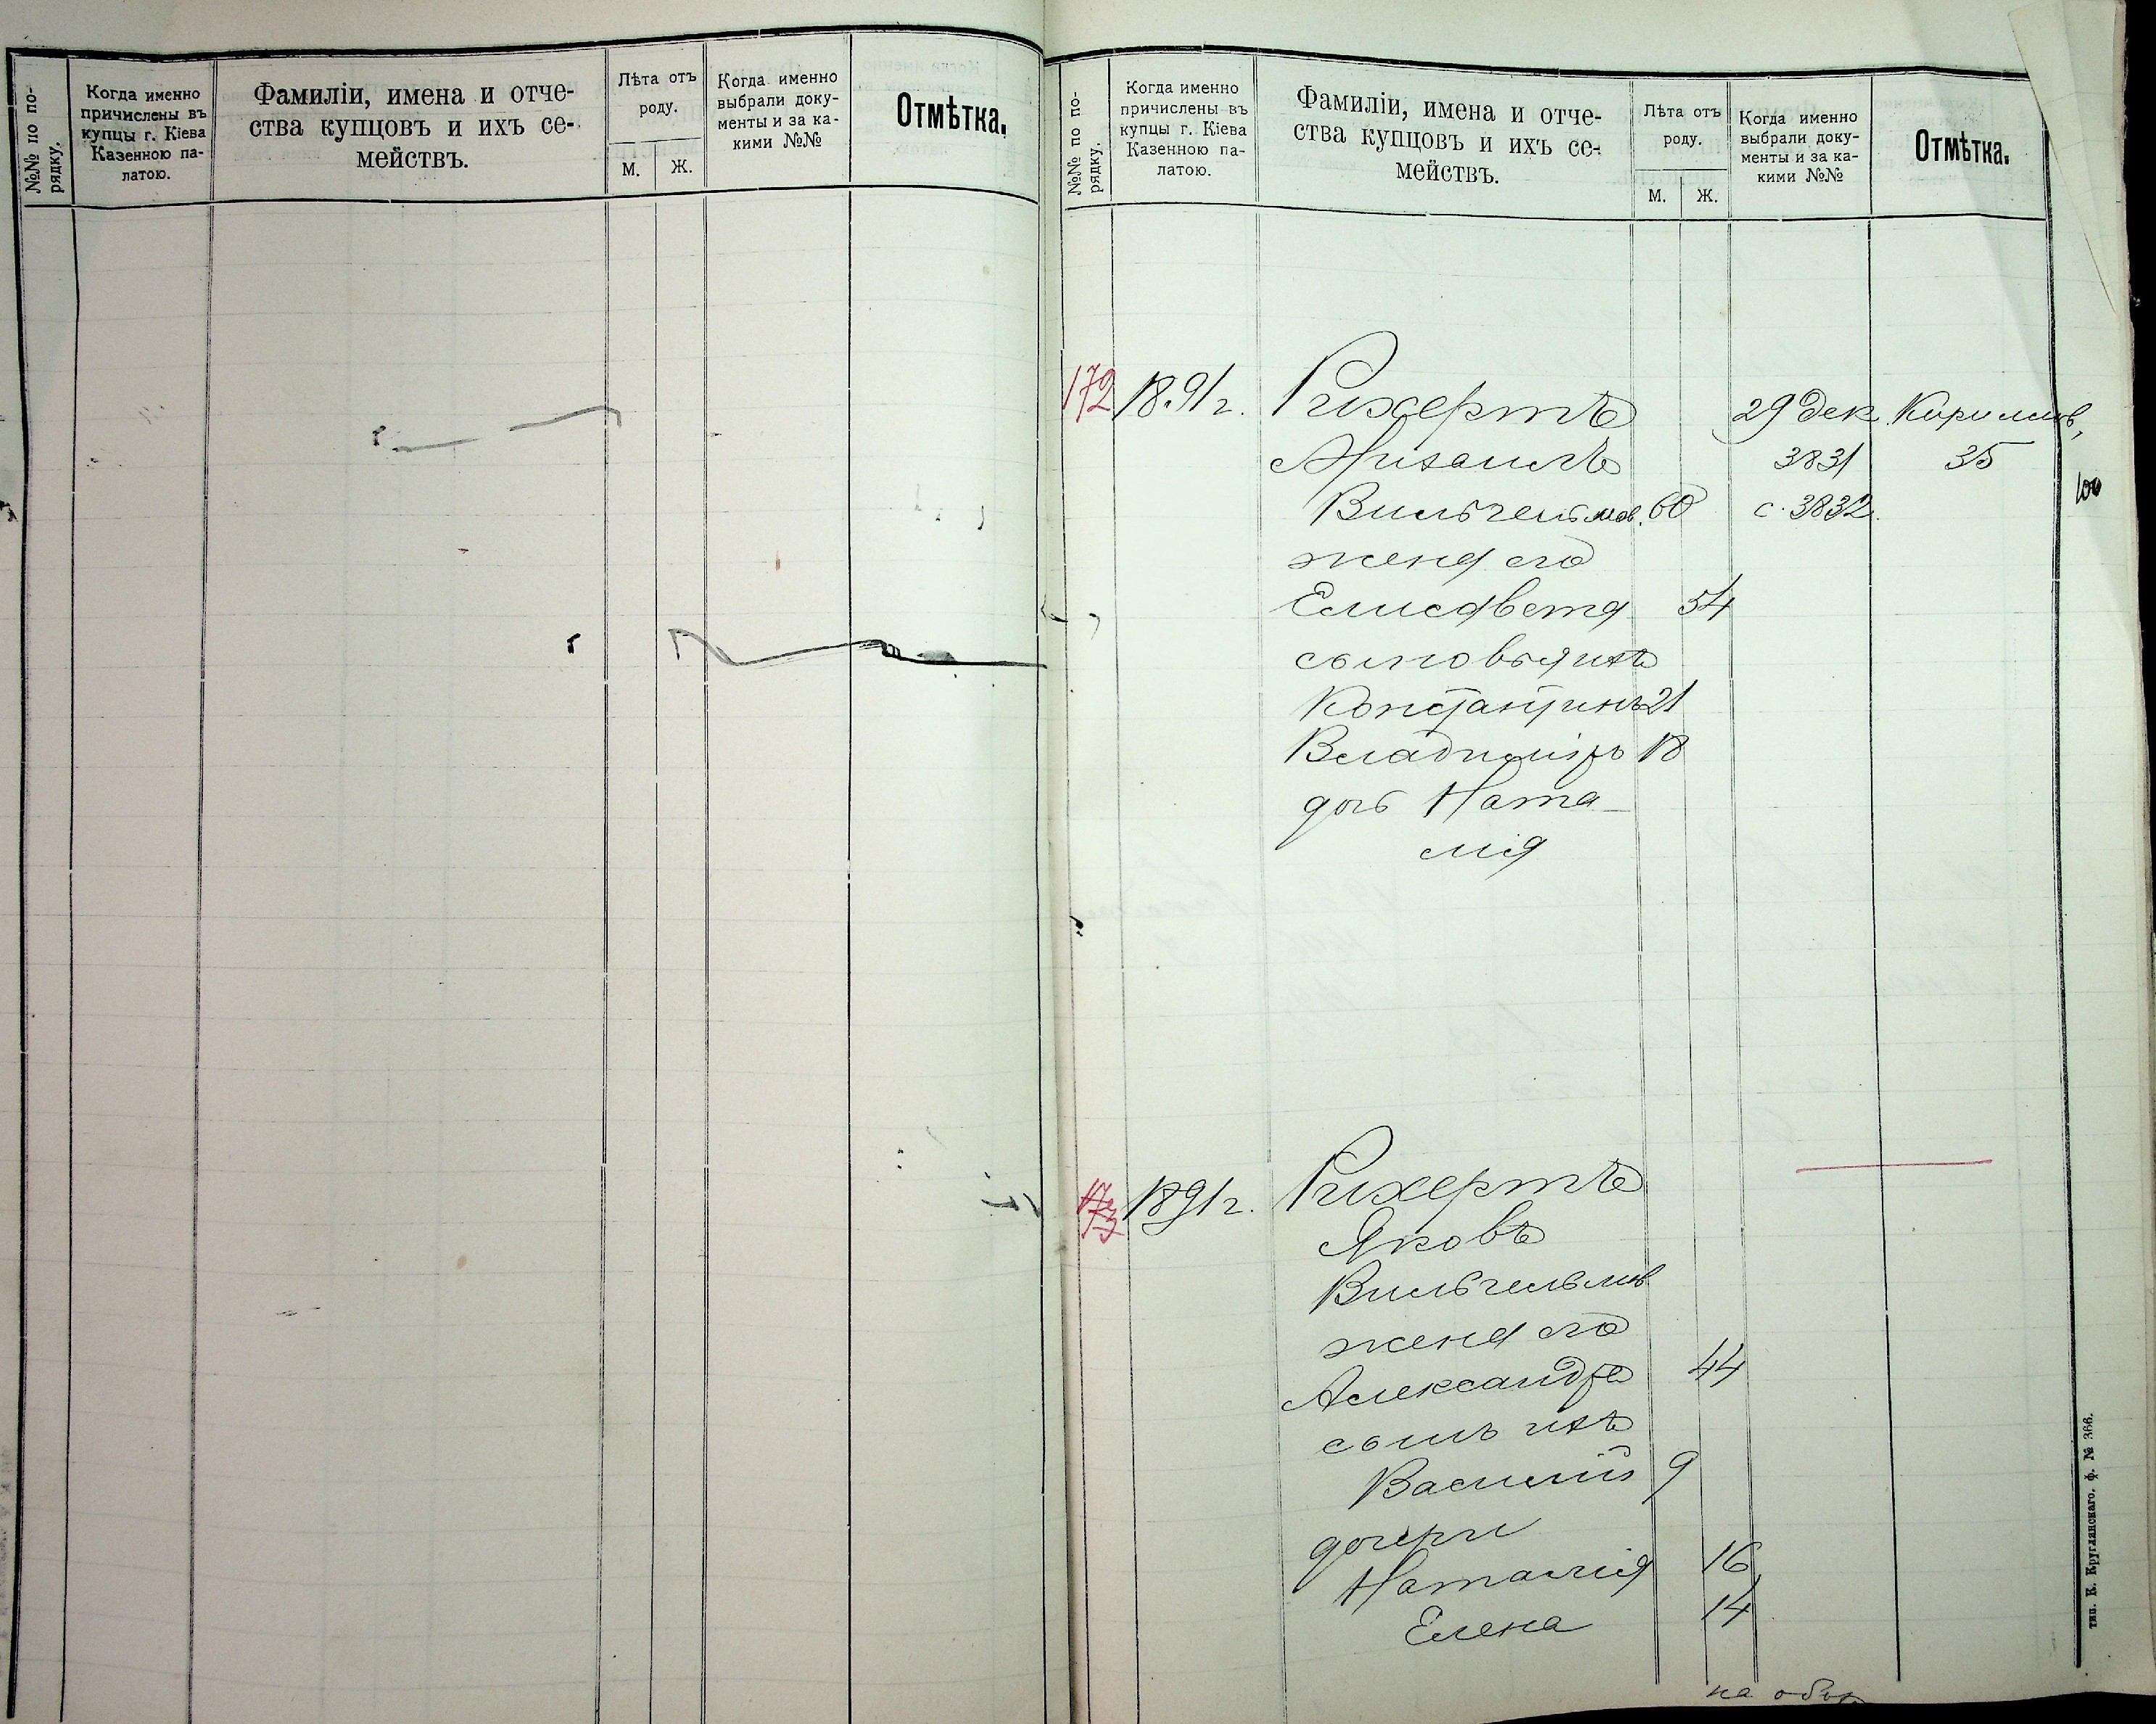 №№ по по-
рядку.
Когда именно
причислены въ
купцы г. Кіева
Казенною па-
латою.
Фамиліи, имена и отче-
ства купцовъ и ихъ се-
мействъ.
Лѣта отъ
роду.
М. Ж.
Когда именно
выбрали доку-
менты и за ка-
кими №№
Отмѣтка.
№№ по по-
рядку.
Когда именно
причислены въ
купцы г. Кіева
Казенною па-
латою.
Фамиліи, имена и отче-
ства купцовъ и ихъ се-
мействъ.
Лѣта отъ
роду.
М. Ж.
Когда именно
выбрали доку-
менты и за ка-
кими №№
Отмѣтка.
172 1891 г. Рихертъ 29 дек. Кирилов,
Михаилъ 3831 35
Вильгельмов. 60 с. 3832.
100
жена его
Елисавета 54
сыновья ихъ
Константинъ 21
Владиміръ 18
дочь Ната-
лія
173 1891 г. Рихертъ
Яковъ
Вильгельмов
жена его
Александра 44
сынъ ихъ
Василій 9
дочери
Наталія 16
Елена 14
на обор
тип. К. Круглянскаго. ф. № 366.